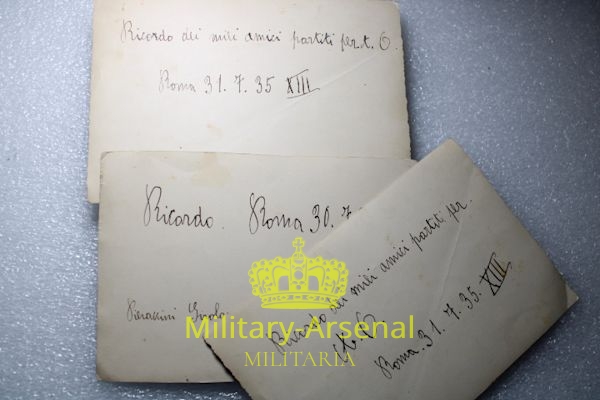 Ricordo dei miei amici partiti per. t. O.
Roma 31. 7. 35 XIII
Ricordo. Roma 30. 7.
Pieraccini
Ricordo dei miei amici partiti per.
Roma. 31. 7. 35. XIII
Military-Arsenal
MILITARIA